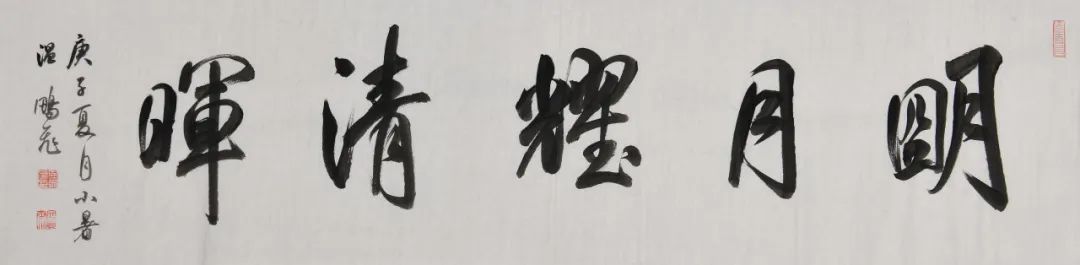 明月耀清暉
庚子夏月小暑
温鵬飛